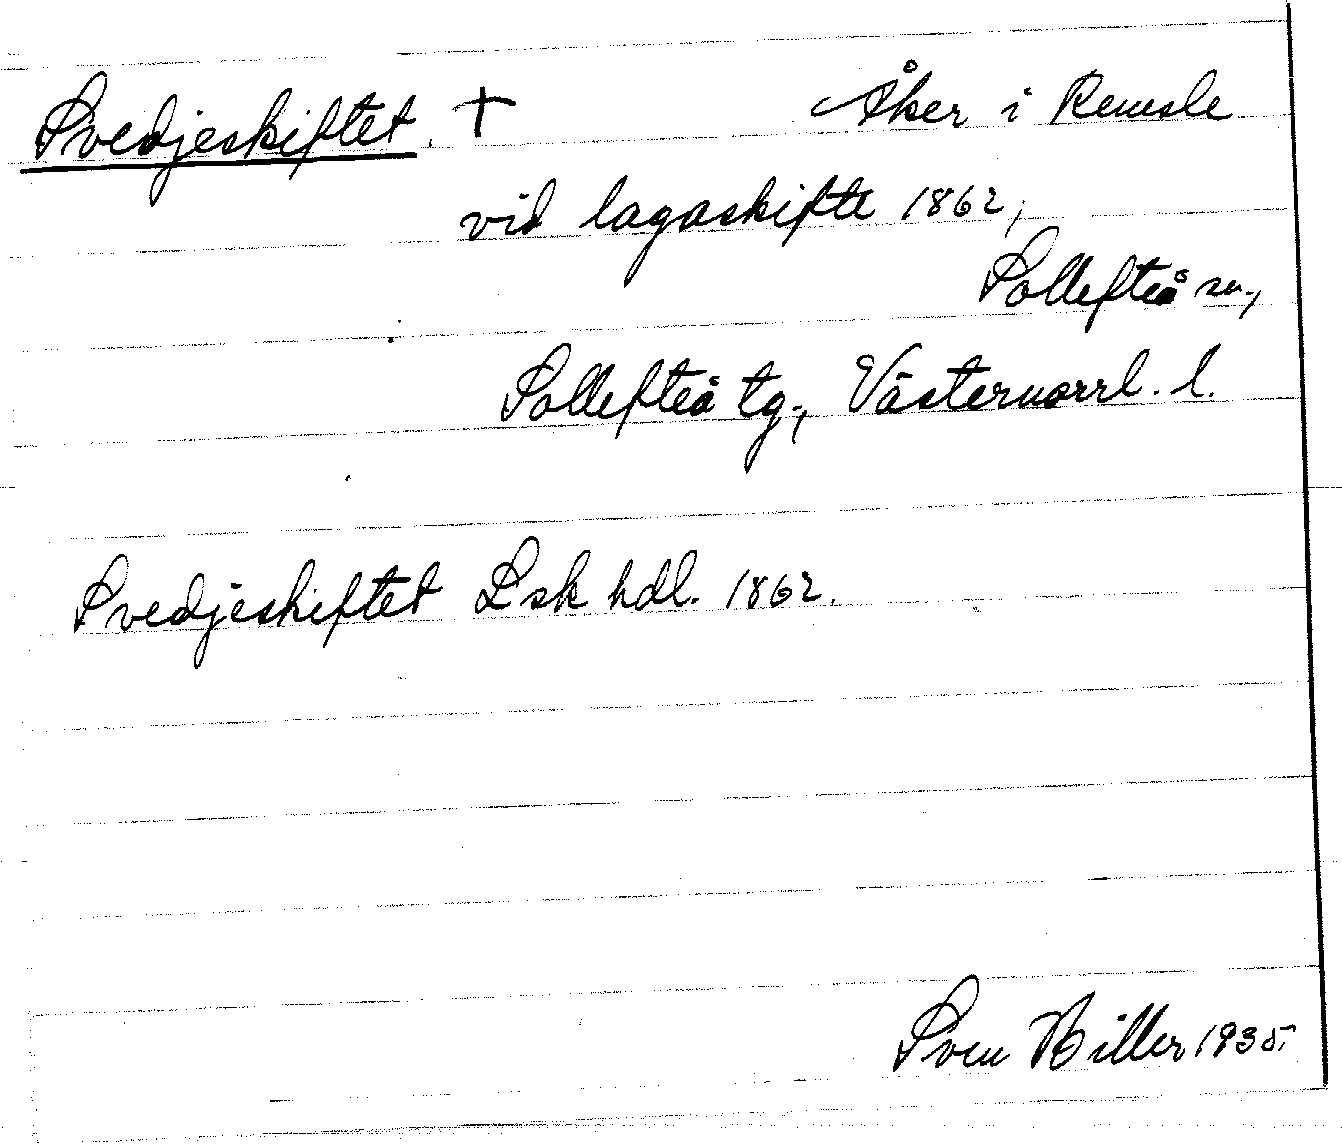 Svedjeskiftet. + Åker i Remsle
vid lagaskifte 1862,
Sollefteå sn.,
Sollefteå tg., Västernorrl. l.
Svedjeskiftet Lsk hdl. 1862.
Sven Hiller 1935.